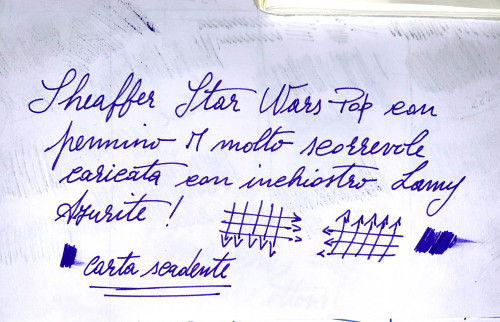 Sheaffer Star Wars Pop con
pennino M molto scorrevole
caricata con inchiostro Lamy
Azurite !
carta scadente